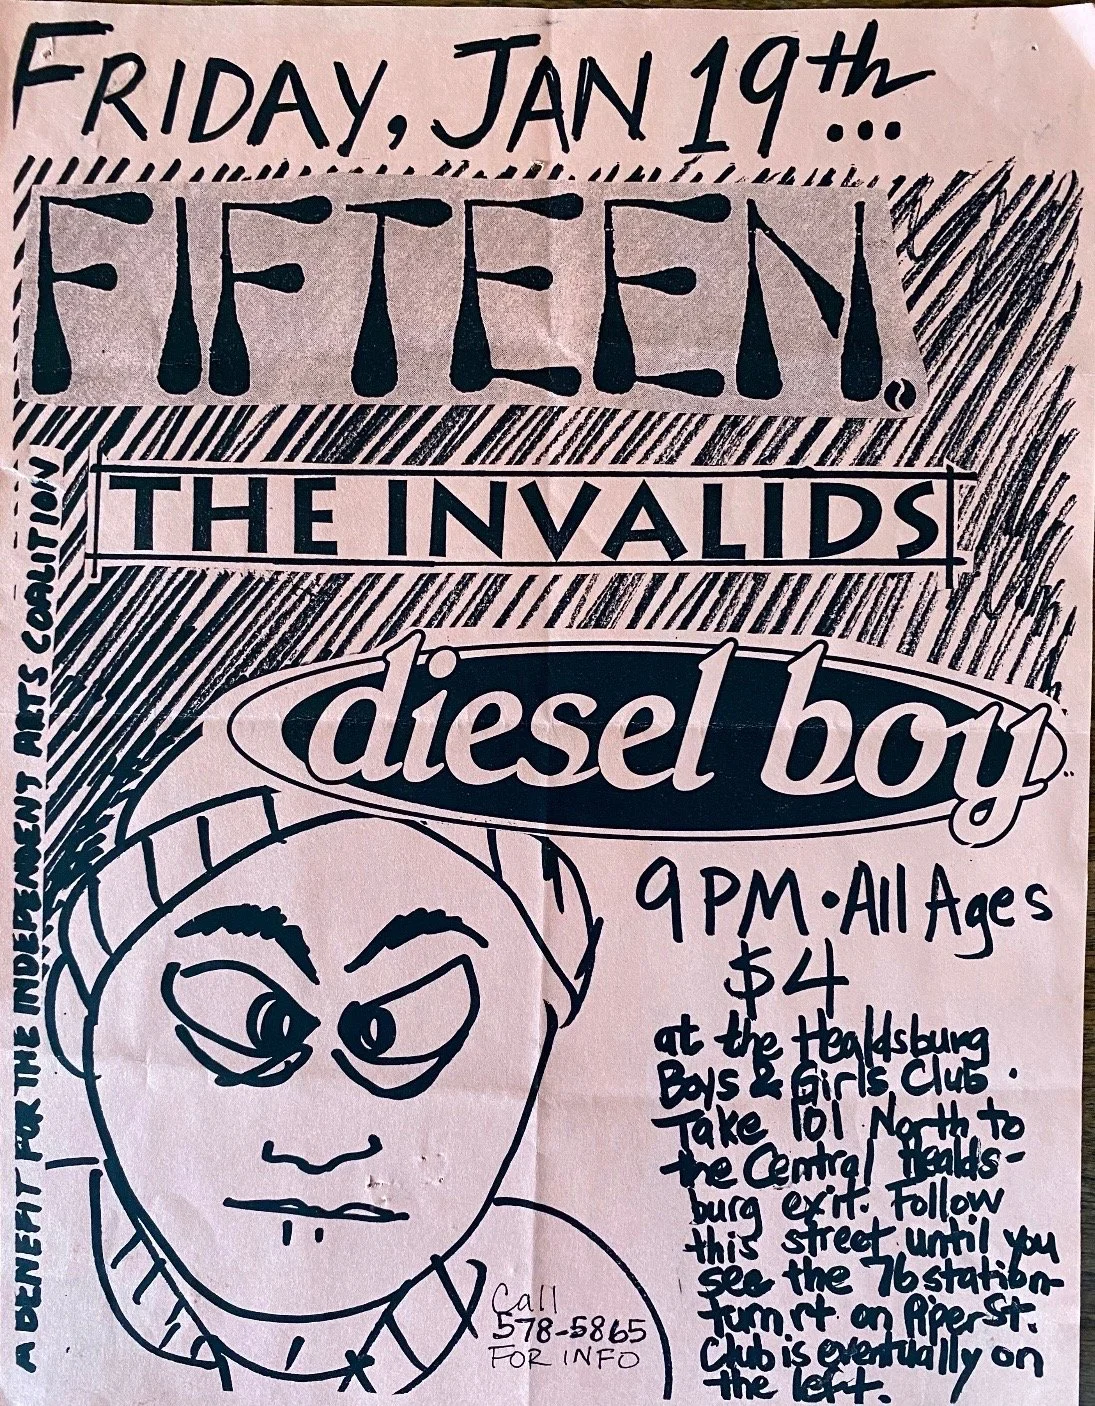 FRIDAY, JAN 19th...
FIFTEEN.
THE INVALIDS
diesel boy
A BENEFIT FOR THE INDEPENDENT ARTS COALITION
9 PM • All Ages
$4
at the Healdsburg
Boys & Girls Club.
Take 101 North to
the Central Healds-
burg exit. Follow
this street until you
see the 76 station-
turn rt on Piper St.
Club is eventually on
the left.
Call
578-5865
FOR INFO